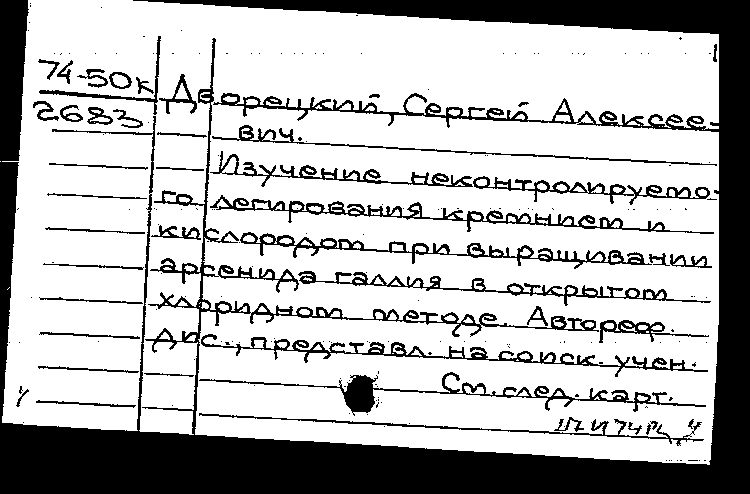 74-50к
2683
Дворецкий, Сергей Алексее-
вич.
Изучение неконтролируемо-
го легирования кремнием и
кислородом при выращивании
арсенида галлия в открытом
хлоридном методе. Автореф.
дис., представл. на соиск. учен.
См. след. карт.